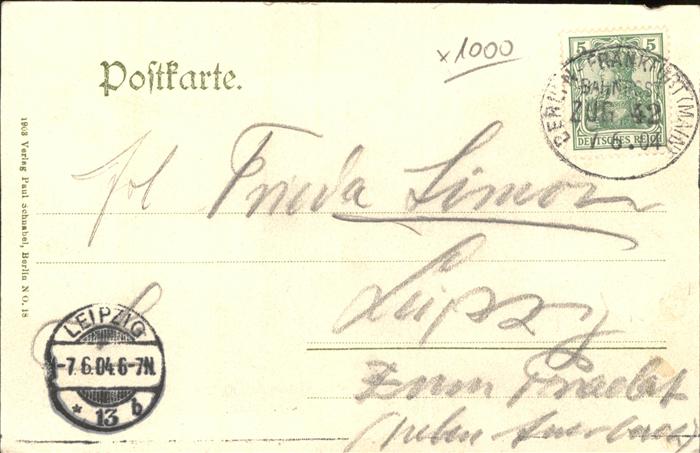 x1000
Postkarte.
5 5
DEUTSCHES REICH
BERLIN FRANKFURT (MAIN)
BAHNPOST
ZUG 42
7 6 04
Frl Frieda Simon
Leipzig
Zum
1903 Verlag Paul Schnabel, Berlin N O. 18
LEIPZIG
-7.6.04.6-7N.
* 13 b